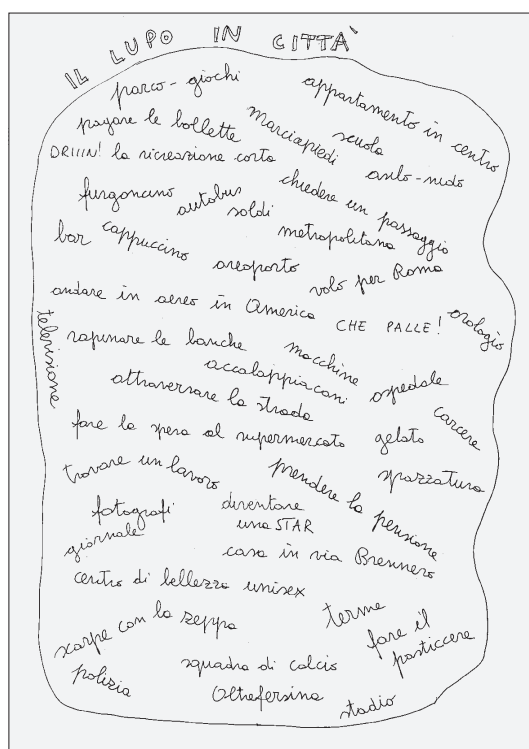 IL LUPO IN CITTÀ
parco-giochi
appartamento in centro
pagare le bollette
marciapiedi
scuola
DRIIIN! la ricreazione corta
asilo-nido
furgoncino
autobus
soldi
chiedere un passaggio
bar
cappuccino
metropolitana
areoporto
volo per Roma
andare in aereo in America
CHE PALLE!
orologio
televisione
rapinare le banche
macchine
accalappiacani
ospedale
attraversare la strada
carcere
fare la spesa al supermercato
gelato
trovare un lavoro
prendere la pensione
spazzatura
fotografi
diventare
una STAR
giornale
casa in via Brennero
centro di bellezza unisex
scarpe con la zeppa
terme
fare il
pasticcere
polizia
squadra di calcio
Oltrefersina
stadio